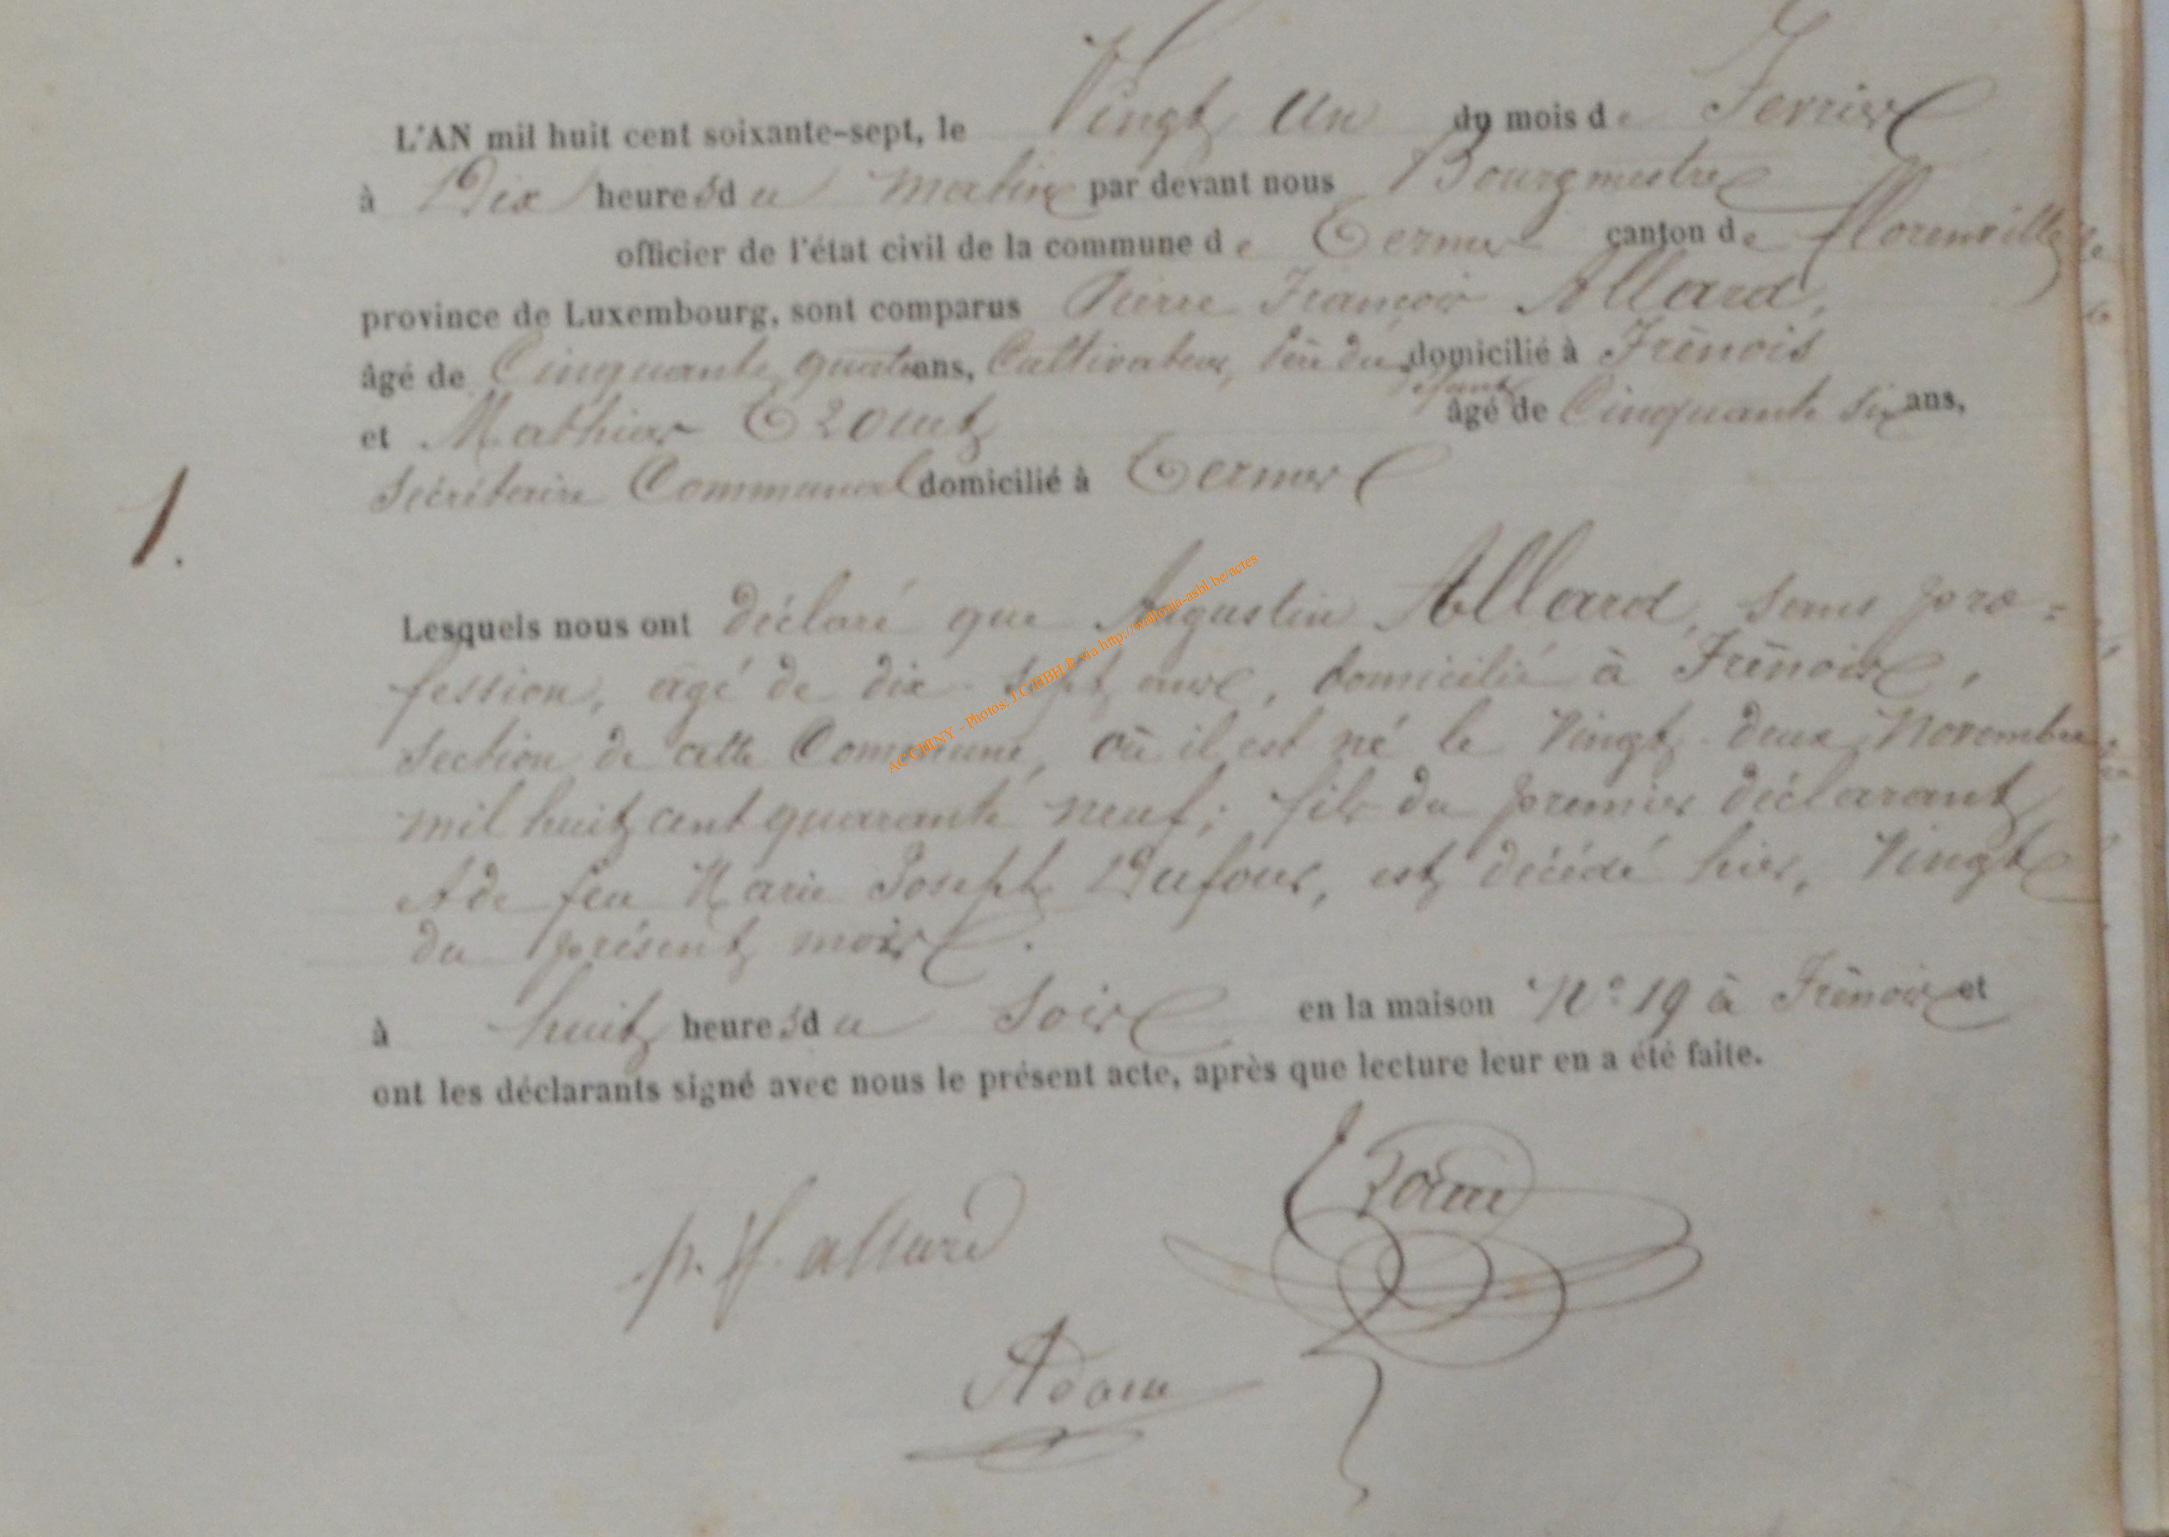 L'AN mil huit cent soixante-sept, le Vingt un du mois de
à Dix heures du matin par devant nous Bourgmestre
officier de l'état civil de la commune de Termes canton de Florenville
province de Luxembourg, sont comparus Pierre François Allard,
âgé de Cinquante quatre ans, Cultivateur, père du domicilié à Frénois
défunt
et Mathieu âgé de Cinquante six ans,
Sécrétaire Communal domicilié à Termes
1.
Lesquels nous ont déclaré que Augustin Allard, sans pro=
fession, agé de dix-sept ans, domicilié à Frénois,
Section de cette Commune, où il est né le Vingt-deux Novembre
mil huit cent quarante neuf; fils du premier déclarant
et de feu Marie Joseph Dufour, est décédé hier, Vingt
du présent mois.
à huit heures du Soir en la maison N° 19 à Frénois et
ont les déclarants signé avec nous le présent acte, après que lecture leur en a été faite.
p. f. allard
Adam
ACCHINY - Photos: J.C.HBH.fr via http://wallonia-asbl.be/actes